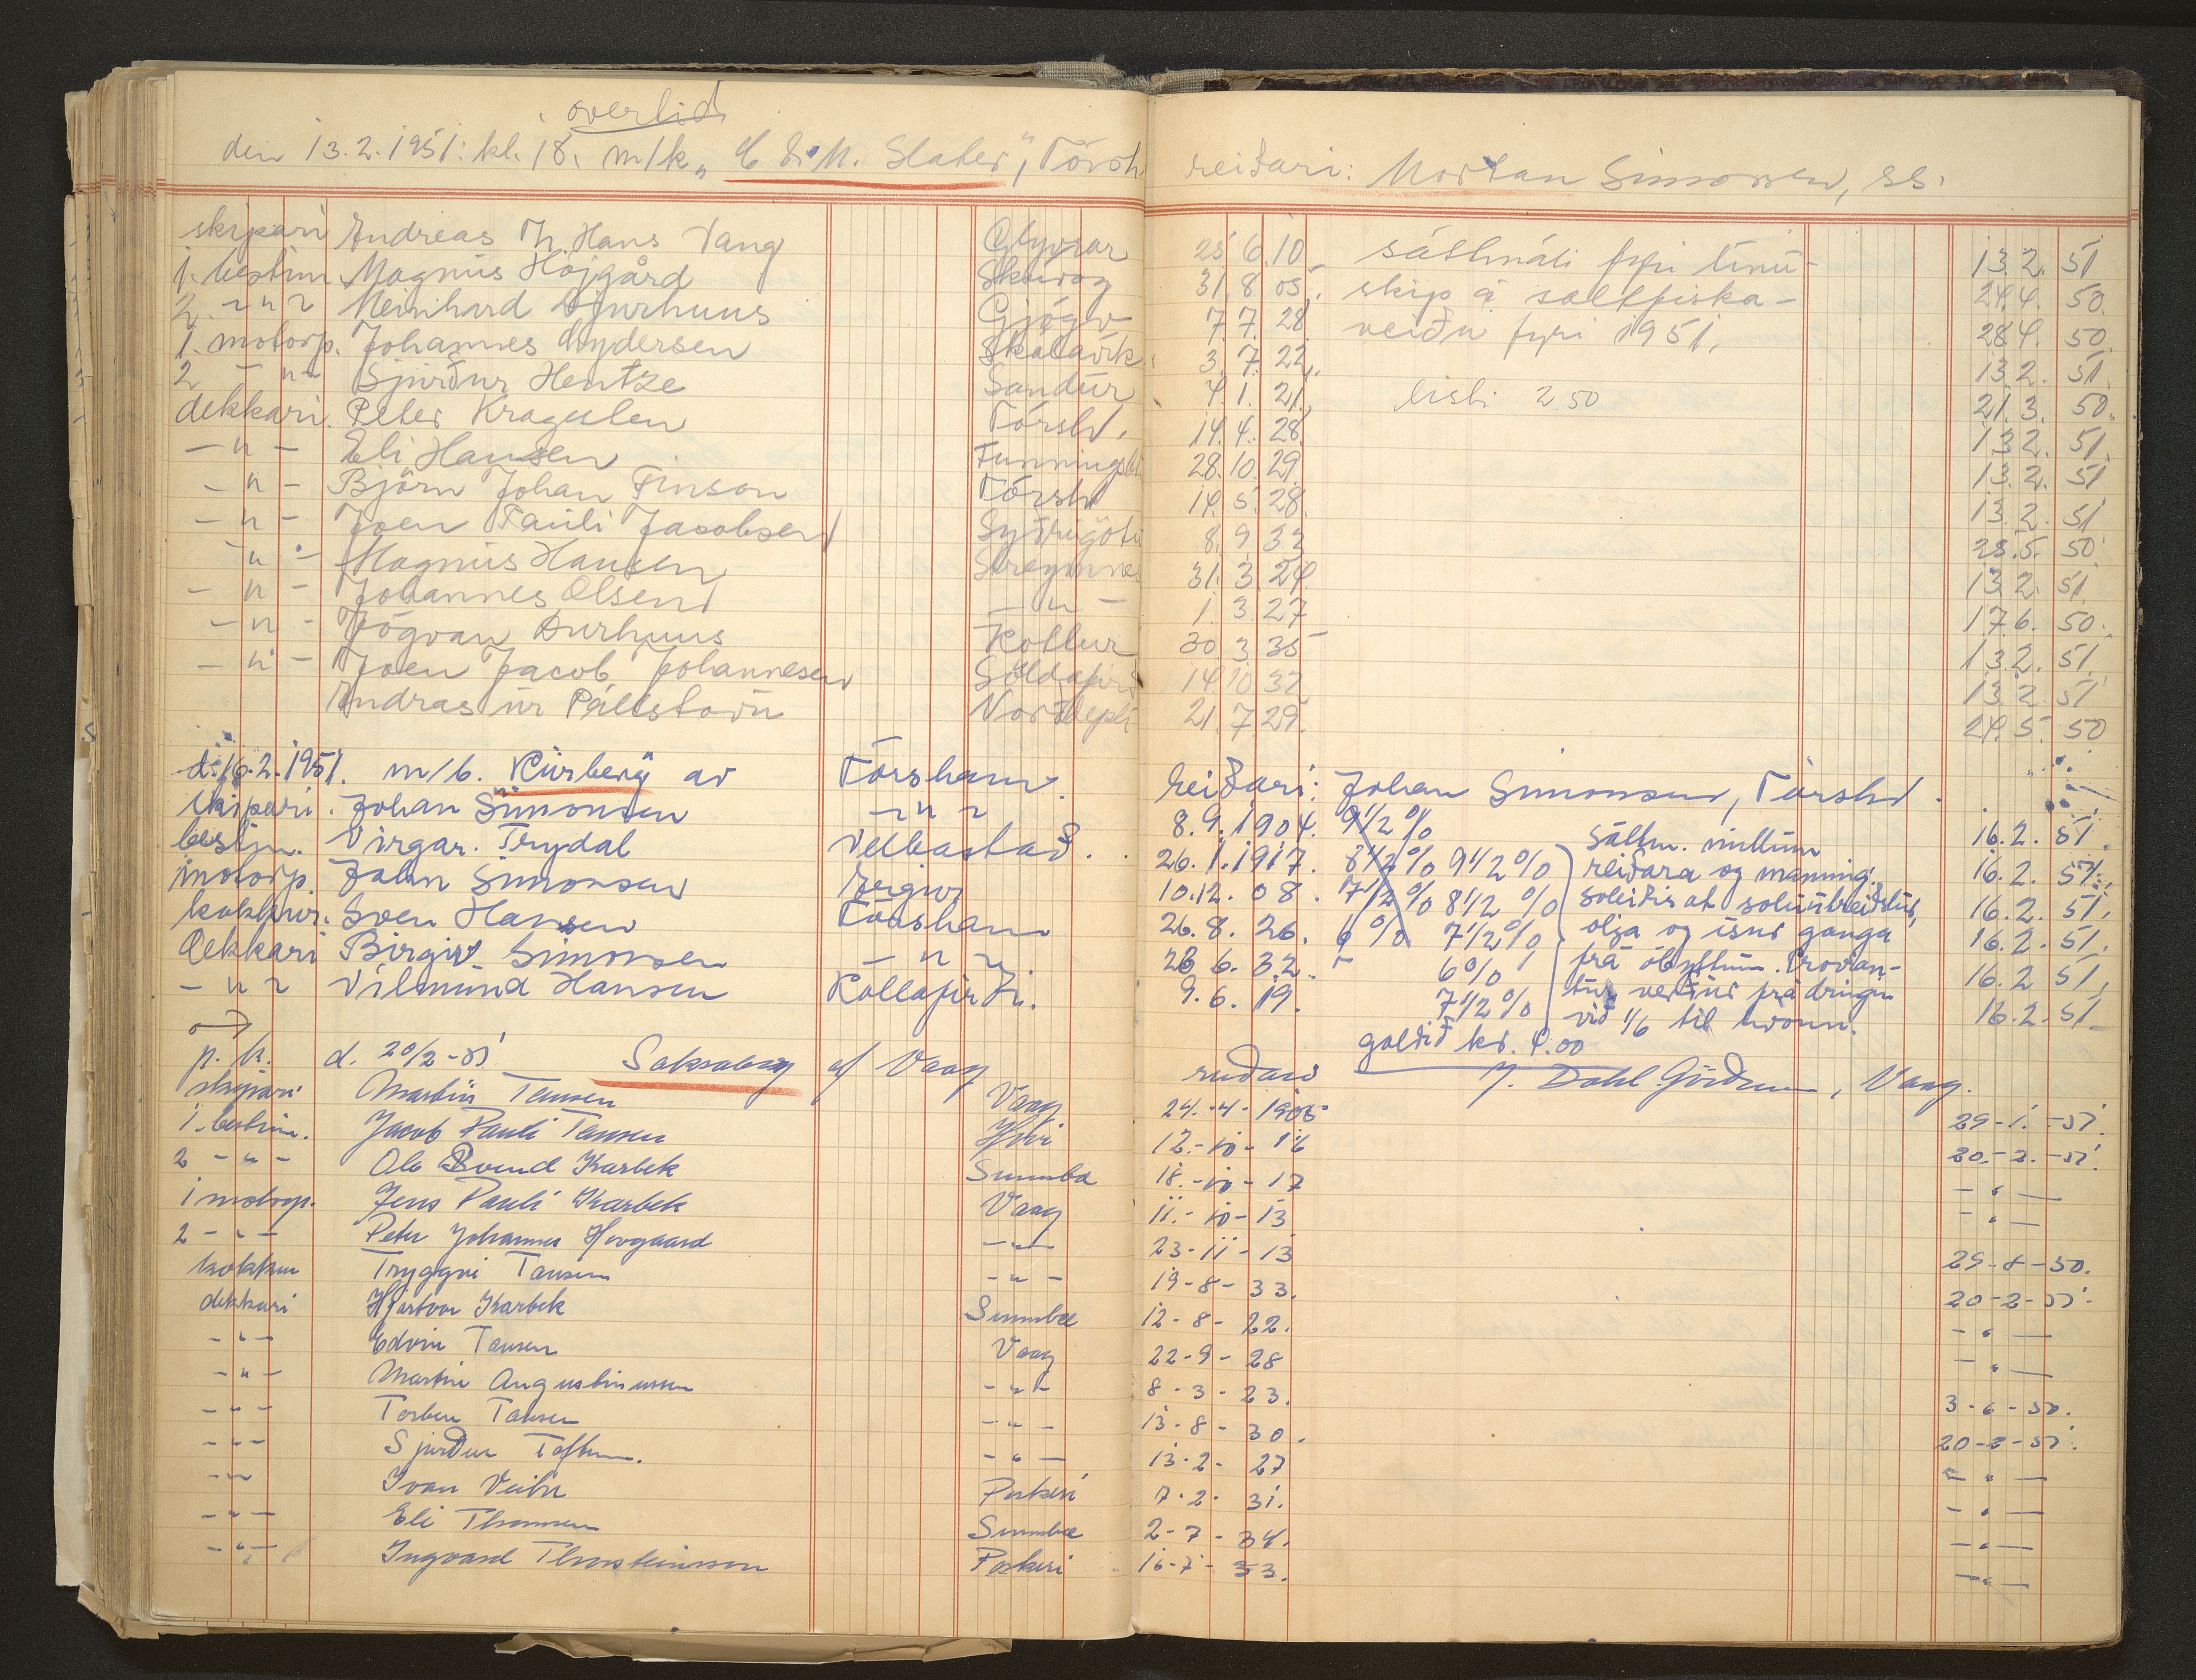 overlid
den 13.2.1951: kl. 18. m/k „C. S. M. Slater", Tórsh. reiðari: Mortan Simonsen, ss.
skipari Andreas Hans Vang Glyvrar 25 6 10 sáttmáli fyri línu- 13.2. 51
1. bestim. Magnus Höjgård Skuvoy 31. 8 05. skip á saltfiska- 24.4. 50.
2. -"- Meinhard Djurhuus Gjógv 7. 7. 28 veiðu fyri 1951. 28.4. 50
1. motorp. Johannes Lydersen Skálavík 3. 7. 22. 13.2. 51.
2 -"- Sjurður Hentze Sandur 4. 1. 21. listi 2.50 21.3. 50.
dekkari. Peter Kragesteen Tórsh. 14. 4. 28. 13.2. 51.
-"- Eli Hansen Funningsbt 28. 10. 29. 13.2. 51
-"- Björn Johan Finson Tórsh 14. 5. 28. 13.2. 51
-"- Joen Pauli Jacobsen Syðrugötu 8. 9 32 25.5. 50
-"- Magnus Hansen Streymnes 31. 3 24. 13.2. 51.
-"- Johannes Olsen -"- 1. 3. 27 17.6. 50.
-"- Jógvan Durhuus Kollur 30 3 35 13.2. 51.
-"- Joen Jacob Johannesen Söldafirð 14 10 32 13.2. 51
Andras úr Pállstovu Norðdepli 21. 7 29. 24. 5. 50
d. 16.2.1951. m/b. Kúrberg av Tórshavn. reiðari: Johan Simonsen, Tórsh.
skipari. Johan Simonsen -"- 8.9.1904. 9 1/2 % sáttm. millum 16.2. 51.
bestm. Virgar. Trydal Velbastað. 26.1.1917. 8 1/2 % 9 1/2 % reiðara og manning. 16.2. 51.
motorp. John Simonsen 10.12. 08. 7 1/2 % 8 1/2 % soleiðis at 16.2. 51.
kokkur. Sven Hansen Tórshavn 26. 8. 26. 6 % 7 1/2 % olja og ísur ganga 16.2. 51.
Dekkari Birgir Simonsen -"- 28 6. 32. 6% frá óbýttum. Provian- 16.2 51,
-"- Vilmund Hansen Kollafirði. 9. 6. 19. 7 1/2 % tur verður frádrigin 16.2. 51
við 1/6 til hvønn.
goldið kr. 4.00
p. k. d. 20/2-51 Saksaberg af Vaag reiðari J. Dahl, Vaag.
skipari Martin Tausen Vaag 24.-4-1905 29-1.-51.
1. bestim. Jacob Pauli Tausen Hvi 12.-10-16 20.-2.-51.
2 -"- Ole Svend Karbek Sumba 18.-10-17 -"-
1 motorp. Jens Pauli Karbek Vaag 11.-10-13 -"-
2 -"- Peter Johannes Hovgaard -"- 23-11-13 29-8-50.
kokkur Tryggvi Tausen -"- 19-8-33. 20-2-51.
dekkari Hjartvar Karbek Sumba 12-8-22. -"-
-"- Edvin Tausen Vaag 22-9-28 -"-
-"- Martin Augustinussen -"- 8-3-23. 3-6-50.
-"- Torben Tausen -"- 13-8-30. 20-2-51.
-"- Sjurður Toftum. -"- 13-2-27 -"-
-"- Ivan Veihe Porkeri 7-2-31. -"-
-"- Eli Thomsen Sumba 2-7-34. -"-
-"- Ingvard Thorsteinsson Porkeri 16-7-33. -"-